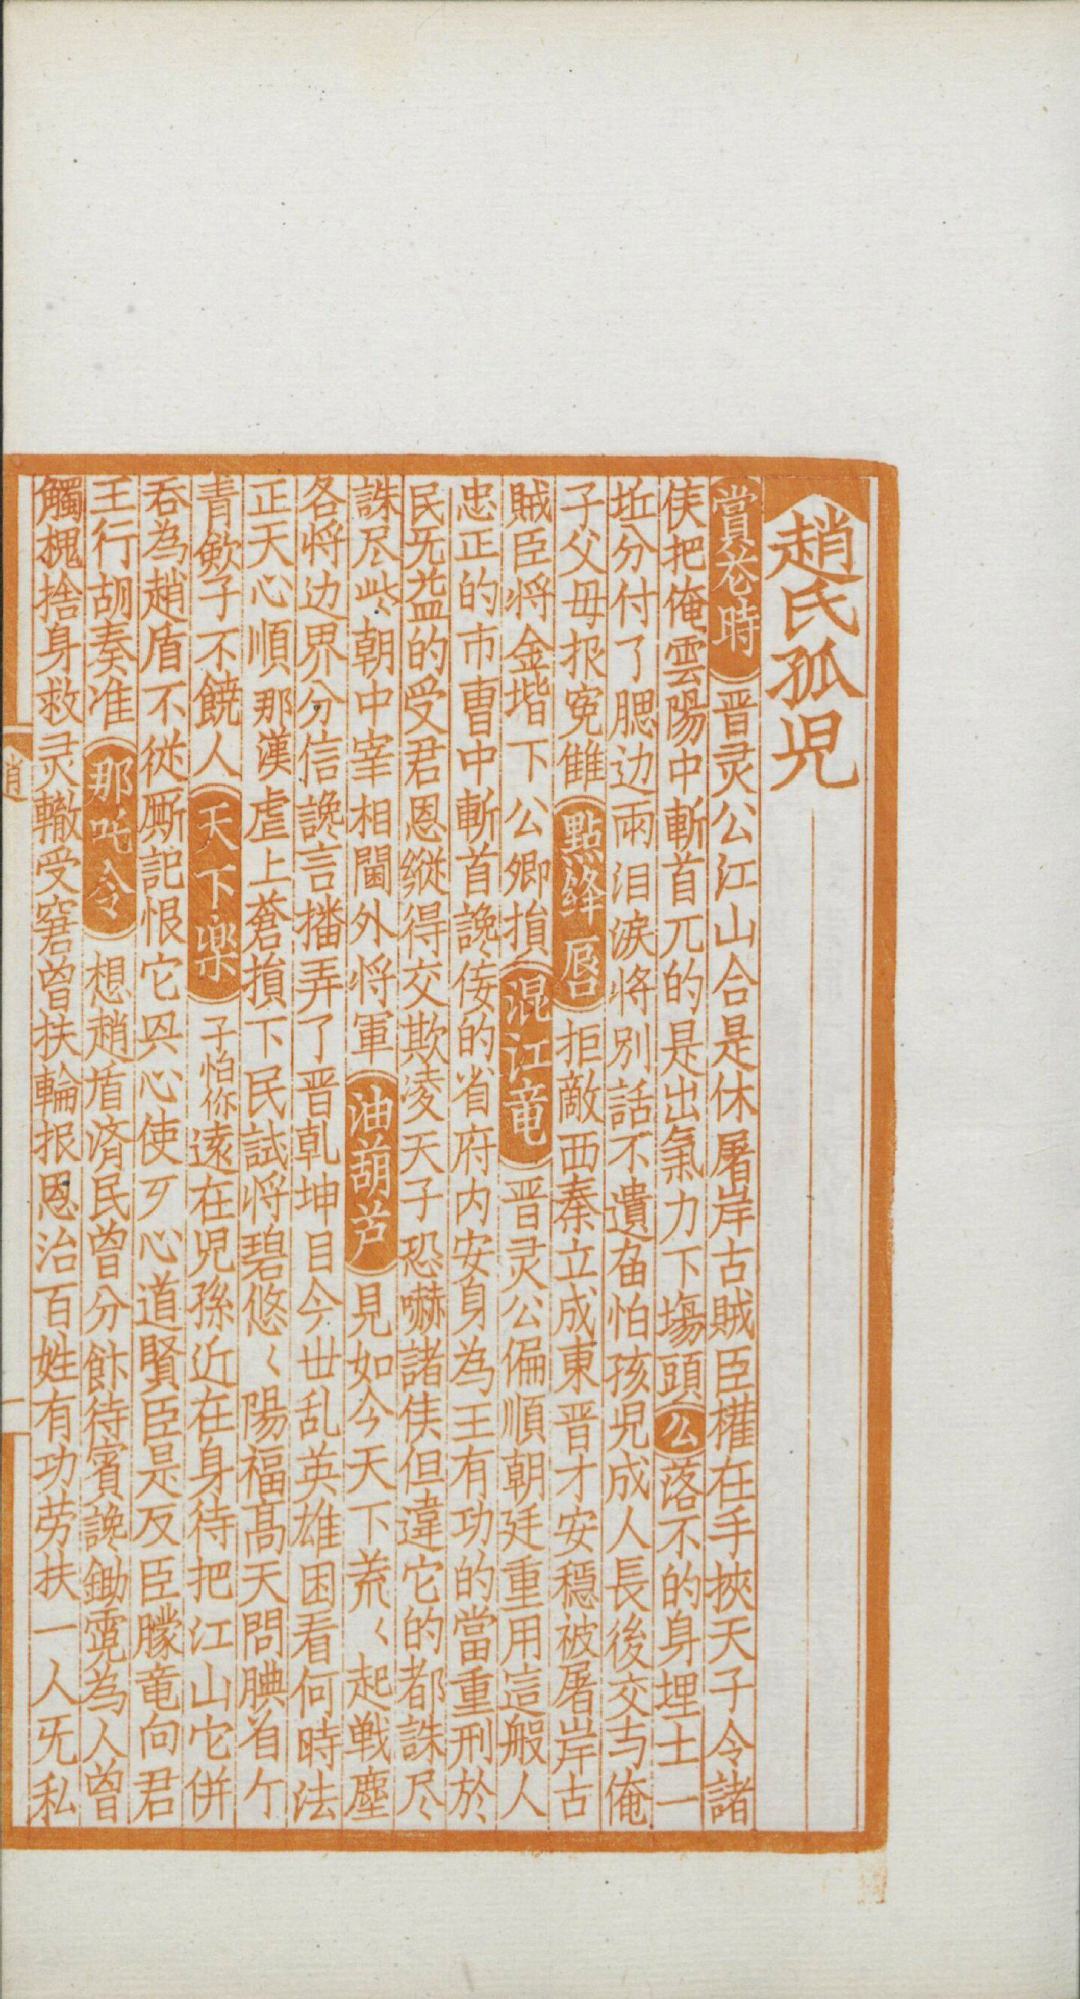 趙氏孤児
賞花時晋灵公江山合是休屠岸古賊臣權在手挾天子令諸
侯把俺雲陽中斬首兀的是出氣力下塲頭公落不的身埋土一
坵分付了腮边兩泪淚将别話不遺留怕孩児成人長後交与俺
子父母报寃雠點絳唇拒敵西秦立成東晋才安穩被屠岸古
賊臣将金堦下公卿損混江竜晋灵公偏順朝廷重用這般人
忠正的市曹中斬首讒侫的省府内安身為王有功的當重刑於
民无益的受君恩縱得交欺凌天子恐嚇諸侯但違它的都誅尽
誅尽些朝中宰相閫外将軍油葫芦見如今天下荒〻起戦塵
各将边界分信讒言播弄了晋乹坤目今世乱英雄困看何時法
正天心順那漢虐上蒼損下民試将碧悠〻陽福高天問腆着个
青歛子不饒人天下楽子怕你遠在児孫近在身待把江山它併
吞為趙盾不從厮記恨它㒷心使歹心道賢臣是反臣朦竜向君
王行胡奏准那吒令想趙盾済民曽分飰待賓讒鋤霓為人曽
觸槐捨身救灵輙受窘曽扶輪报恩治百姓有功劳扶一人无私
趙
一